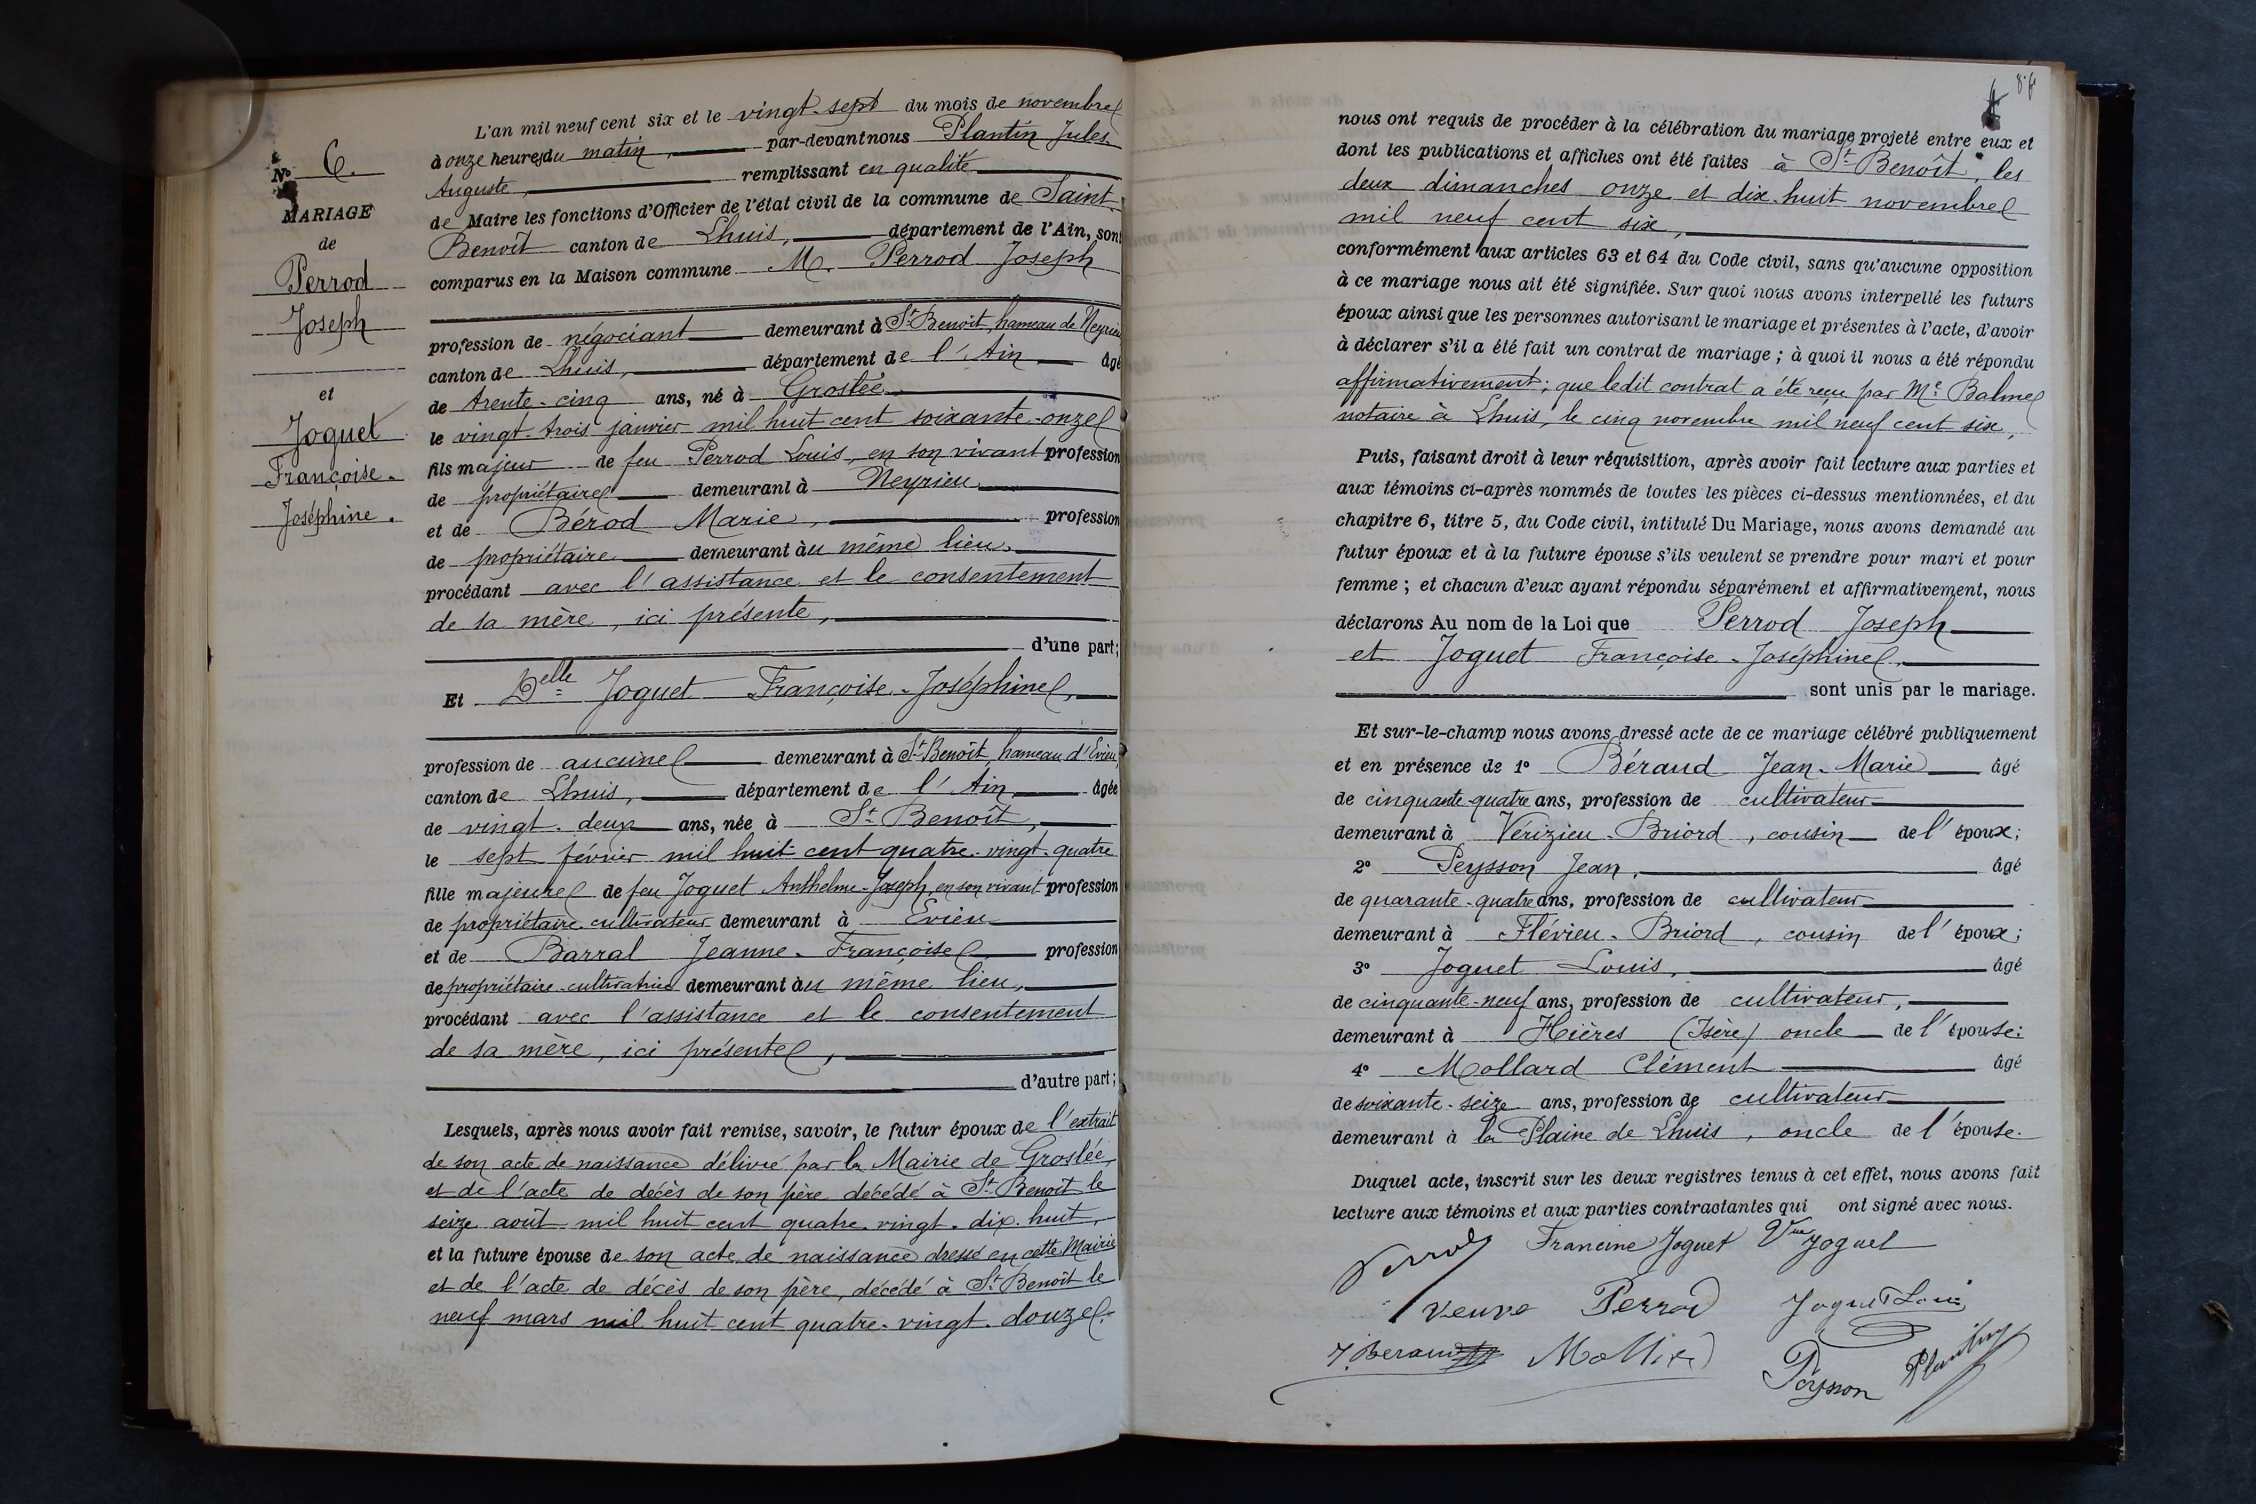 N° 6.
MARIAGE
de
Perrod
Joseph
et
Joguet
Françoise-
Joséphine.
L'an mil neuf cent six et le vingt-sept du mois de novembre
à onze heures du matin, par-devant nous Plantin Jules-
Auguste, remplissant en qualité
de Maire les fonctions d'Officier de l'état civil de la commune de Saint-
Benoît canton de Lhuis, département de l'Ain, sont
comparus en la Maison commune M. Perrod Joseph
profession de négociant demeurant à St Benoît, hameau de Neyrieu
canton de Lhuis, département de l'Ain âgé
de trente-cinq ans, né à Groslée
le vingt-trois janvier mil huit cent soixante-onze
fils majeur de feu Perrod Louis, en son vivant profession
de propriétaire demeurant à Neyrieu
et de Bérod Marie, profession
de propriétaire demeurant au même lieu,
procédant avec l'assistance et le consentement
de sa mère, ici présente,
d'une part;
Et Delle Joguet Françoise-Joséphine,
profession de aucune demeurant à St Benoît, hameau d'Evieu,
canton de Lhuis, département de l'Ain âgée
de vingt-deux ans, née à St Benoît,
le sept février mil huit cent quatre-vingt-quatre
fille majeure de feu Joguet Anthelme-Joseph, en son vivant profession
de propriétaire-cultivateur demeurant à Evieu
et de Barral Jeanne-Françoise profession
de propriétaire-cultivatrice demeurant au même lieu,
procédant avec l'assistance et le consentement
de sa mère, ici présente,
d'autre part;
Lesquels, après nous avoir fait remise, savoir, le futur époux de l'extrait
de son acte de naissance délivré par la Mairie de Groslée,
et de l'acte de décès de son père décédé à St Benoît le
seize août mil huit cent quatre-vingt-dix-huit,
et la future épouse de son acte de naissance dressé en cette Mairie
et de l'acte de décès de son père, décédé à St Benoît le
neuf mars mil huit cent quatre-vingt-douze.
nous ont requis de procéder à la célébration du mariage projeté entre eux et
dont les publications et affiches ont été faites à St Benoît, les
deux dimanches onze et dix-huit novembre
mil neuf cent six,
conformément aux articles 63 et 64 du Code civil, sans qu'aucune opposition
à ce mariage nous ait été signifiée. Sur quoi nous avons interpellé les futurs
époux ainsi que les personnes autorisant le mariage et présentes à l'acte, d'avoir
à déclarer s'il a été fait un contrat de mariage; à quoi il nous a été répondu
affirmativement; que ledit contrat a été reçu par Me Balme
notaire à Lhuis, le cinq novembre mil neuf cent six,
Puis, faisant droit à leur réquisition, après avoir fait lecture aux parties et
aux témoins ci-après nommés de toutes les pièces ci-dessus mentionnées, et du
chapitre 6, titre 5, du Code civil, intitulé Du Mariage, nous avons demandé au
futur époux et à la future épouse s'ils veulent se prendre pour mari et pour
femme; et chacun d'eux ayant répondu séparément et affirmativement, nous
déclarons Au nom de la Loi que Perrod Joseph
et Joguet Françoise-Joséphine,
sont unis par le mariage.
Et sur-le-champ nous avons dressé acte de ce mariage célébré publiquement
et en présence de 1° Béraud Jean-Marie âgé
de cinquante-quatre ans, profession de cultivateur
demeurant à Vérizieu-Briord, cousin de l'époux;
2° Peysson Jean, âgé
de quarante-quatre ans, profession de cultivateur
demeurant à Flévieu-Briord, cousin de l'époux;
3° Joguet Louis, âgé
de cinquante-neuf ans, profession de cultivateur,
demeurant à Hières (Isère) oncle de l'épouse:
4° Mollard Clément âgé
de soixante-seize ans, profession de cultivateur
demeurant à la Plaine de Lhuis, oncle de l'épouse.
Duquel acte, inscrit sur les deux registres tenus à cet effet, nous avons fait
lecture aux témoins et aux parties contractantes qui ont signé avec nous.
Perrod Francine Joguet Vve Joguet
veuve Perrod Joguet Louis
J. Beraud Mollard Peysson Plantin